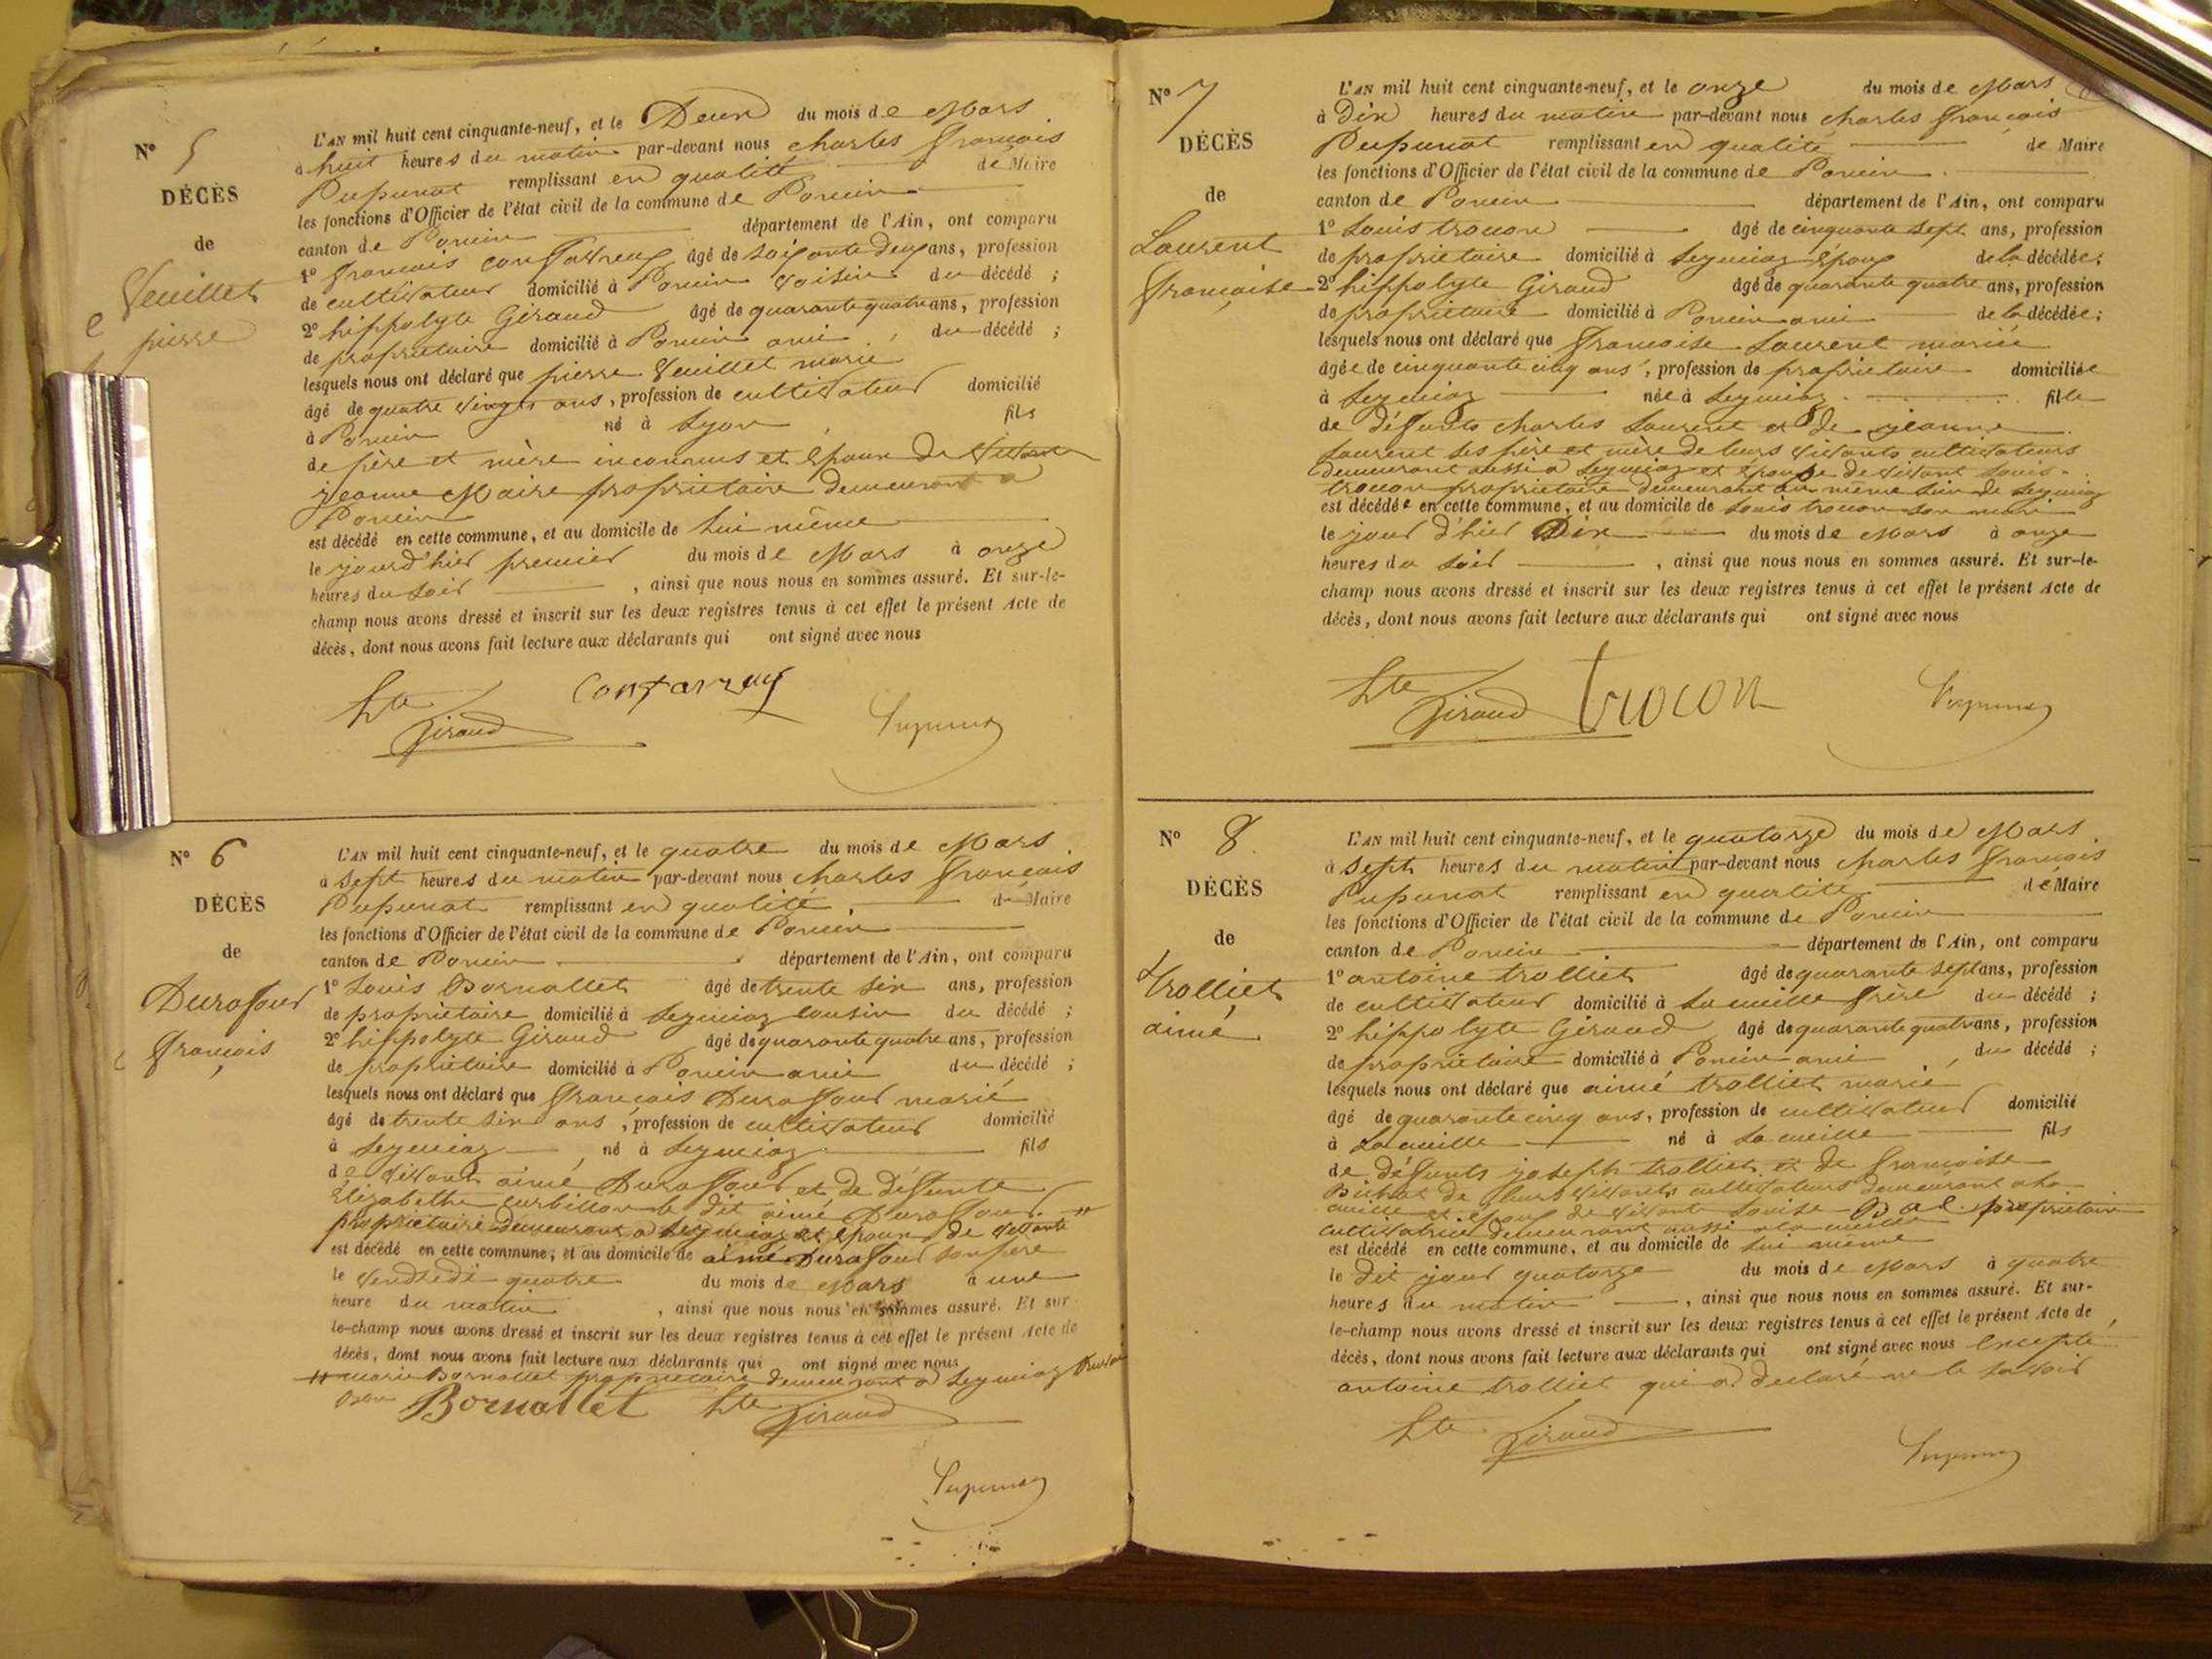 N° 5
DÉCÈS
de
Veuillet
pierre
L'AN mil huit cent cinquante-neuf, et le Deux du mois de Mars
à huit heures du matin par-devant nous charles françois
Pupunat remplissant en qualité de Maire
les fonctions d'Officier de l'état civil de la commune de Poncin
canton de Poncin département de l'Ain, ont comparu
1° françois âgé de soixante deux ans, profession
de cultivateur domicilié à Poncin voisin du décédé ;
2° hippolyte Giraud âgé de quarante quatre ans, profession
de propriétaire domicilié à Poncin ami du décédé ;
lesquels nous ont déclaré que pierre Veuillet marié
âgé de quatre vingts ans, profession de cultivateur domicilié
à Poncin né à Lyon fils
de père et mère inconnus et époux de vivante
jeanne Maire propriétaire demeurant a
Poncin
est décédé en cette commune, et au domicile de lui même
le jourd'hier premier du mois de Mars à onze
heures du soir , ainsi que nous nous en sommes assuré. Et sur-le-
champ nous avons dressé et inscrit sur les deux registres tenus à cet effet le présent Acte de
décès, dont nous avons fait lecture aux déclarants qui ont signé avec nous
hte Giraud
Pupunat
N° 6
DÉCÈS
de
Durafour
françois
L'AN mil huit cent cinquante-neuf, et le quatre du mois de Mars
à sept heures du matin par-devant nous charles françois
Pupunat remplissant en qualité de Maire
les fonctions d'Officier de l'état civil de la commune de Poncin
canton de Poncin département de l'Ain, ont comparu
1° Louis Bornallet âgé de trente six ans, profession
de propriétaire domicilié à Leymiaz cousin du décédé ;
2° hippolyte Giraud âgé de quarante quatre ans, profession
de propriétaire domicilié à Poncin ami du décédé ;
lesquels nous ont déclaré que françois Durafour marié
âgé de trente six ans, profession de cultivateur domicilié
à Leymiaz né à Leymiaz fils
de vivant aimé Durafour et de défunte
Elizabethe curbillon le dit aimé Durafour
propriétaire demeurant a Leymiaz et époux de vivante "
est décédé en cette commune, et au domicile de aimé Durafour son père
le vendredi quatre du mois de Mars à une
heure du matin , ainsi que nous nous en sommes assuré. Et sur-
le-champ nous avons dressé et inscrit sur les deux registres tenus à cet effet le présent Acte de
décès, dont nous avons fait lecture aux déclarants qui ont signé avec nous
" marie Bornallet propriétaire demeurant a Leymiaz
Bornallet hte Giraud
Pupunat
N° 7
DÉCÈS
de
Laurent
françoise
L'AN mil huit cent cinquante-neuf, et le onze du mois de Mars
à Dix heures du matin par-devant nous charles françois
Pupunat remplissant en qualité de Maire
les fonctions d'Officier de l'état civil de la commune de Poncin
canton de Poncin département de l'Ain, ont comparu
1° Louis trocon âgé de cinquante sept ans, profession
de propriétaire domicilié à Leymiaz époux de la décédée ;
2° hippolyte Giraud âgé de quarante quatre ans, profession
de propriétaire domicilié à Poncin ami de la décédée ;
lesquels nous ont déclaré que françoise Laurent mariée
âgée de cinquante cinq ans, profession de propriétaire domiciliée
à Leymiaz née à Leymiaz fille
de défunts charles Laurent et de jeanne
Laurent ses père et mère de leurs vivants cultivateurs
demeurant aussi a Leymiaz et épouse de vivant Louis
trocon propriétaire demeurant au même lieu de Leymiaz
est décédée en cette commune, et au domicile de Louis trocon son mari
le jour d'hier Dix du mois de Mars à onze
heures du soir , ainsi que nous nous en sommes assuré. Et sur-le-
champ nous avons dressé et inscrit sur les deux registres tenus à cet effet le présent Acte de
décès, dont nous avons fait lecture aux déclarants qui ont signé avec nous
hte Giraud trocon
Pupunat
N° 8
DÉCÈS
de
trolliet
aimé
L'AN mil huit cent cinquante-neuf, et le quatorze du mois de Mars
à sept heures du matin par-devant nous charles françois
Pupunat remplissant en qualité de Maire
les fonctions d'Officier de l'état civil de la commune de Poncin
canton de Poncin département de l'Ain, ont comparu
1° antoine trolliet âgé de quarante sept ans, profession
de cultivateur domicilié à La cueille frère du décédé ;
2° hippolyte Giraud âgé de quarante quatre ans, profession
de propriétaire domicilié à Poncin ami du décédé ;
lesquels nous ont déclaré que aimé trolliet marié
âgé de quarante cinq ans, profession de cultivateur domicilié
à La cueille né à La cueille fils
de défunts joseph trolliet et de françoise
de leurs vivants cultivateurs demeurant a la
cueille et époux de vivante Louise propriétaire
cultivatrice demeurant aussi a la cueille
est décédé en cette commune, et au domicile de lui même
le dit jour quatorze du mois de Mars à quatre
heures du matin , ainsi que nous nous en sommes assuré. Et sur-
le-champ nous avons dressé et inscrit sur les deux registres tenus à cet effet le présent Acte de
décès, dont nous avons fait lecture aux déclarants qui ont signé avec nous excepté
antoine trolliet qui a déclaré ne le savoir
hte Giraud
Pupunat